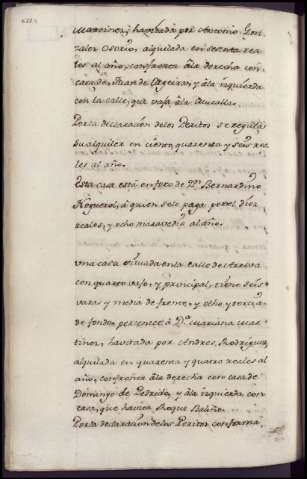 Martinez, y havitada por Antonio Gon-
zalez Osorio, alquilada en sesenta rea-
les al año, confronta âla derecha con
casa de Juan de y âla izquierda
con la calle, que vaja âla Muralla.
Por la declaración delos Peritos se regula
su alquiler en ciento, quarenta y seis rea-
les al año.
Esta casa está en foro de Dn. Bernardino
Nogueros, á quien se le paga por el diez
reales, y ocho maravedis al año.
Una casa situada en la calle de
con quarto vajo, y principal, tiene seis
varas y media de frente, y ocho, y tercia
de fondo, pertenece â Da. Mariana Mar-
tinez, havitada por Andres Rodriguez,
alquilada en quarenta y quatro reales al
año, confronta âla derecha con casa de
Domingo de y âla izquierda con
casa, que havita Roque
Por la declaración delos Peritos conforma,